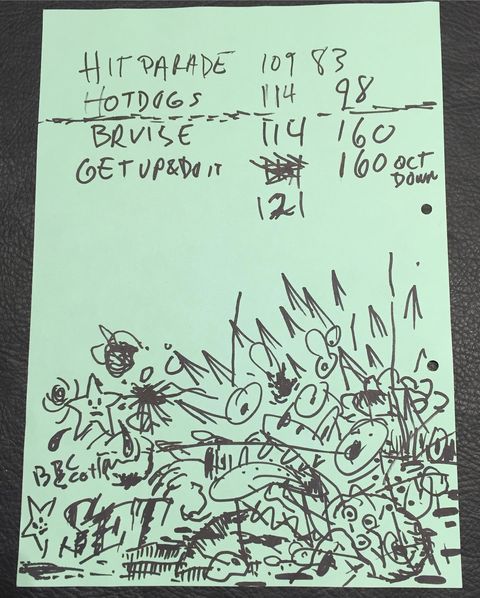 HIT PARADE 109 83
HOTDOGS 114 98
BRUISE 114 160
GET UP & DO IT 160 OCT
DOWN
121
BBC